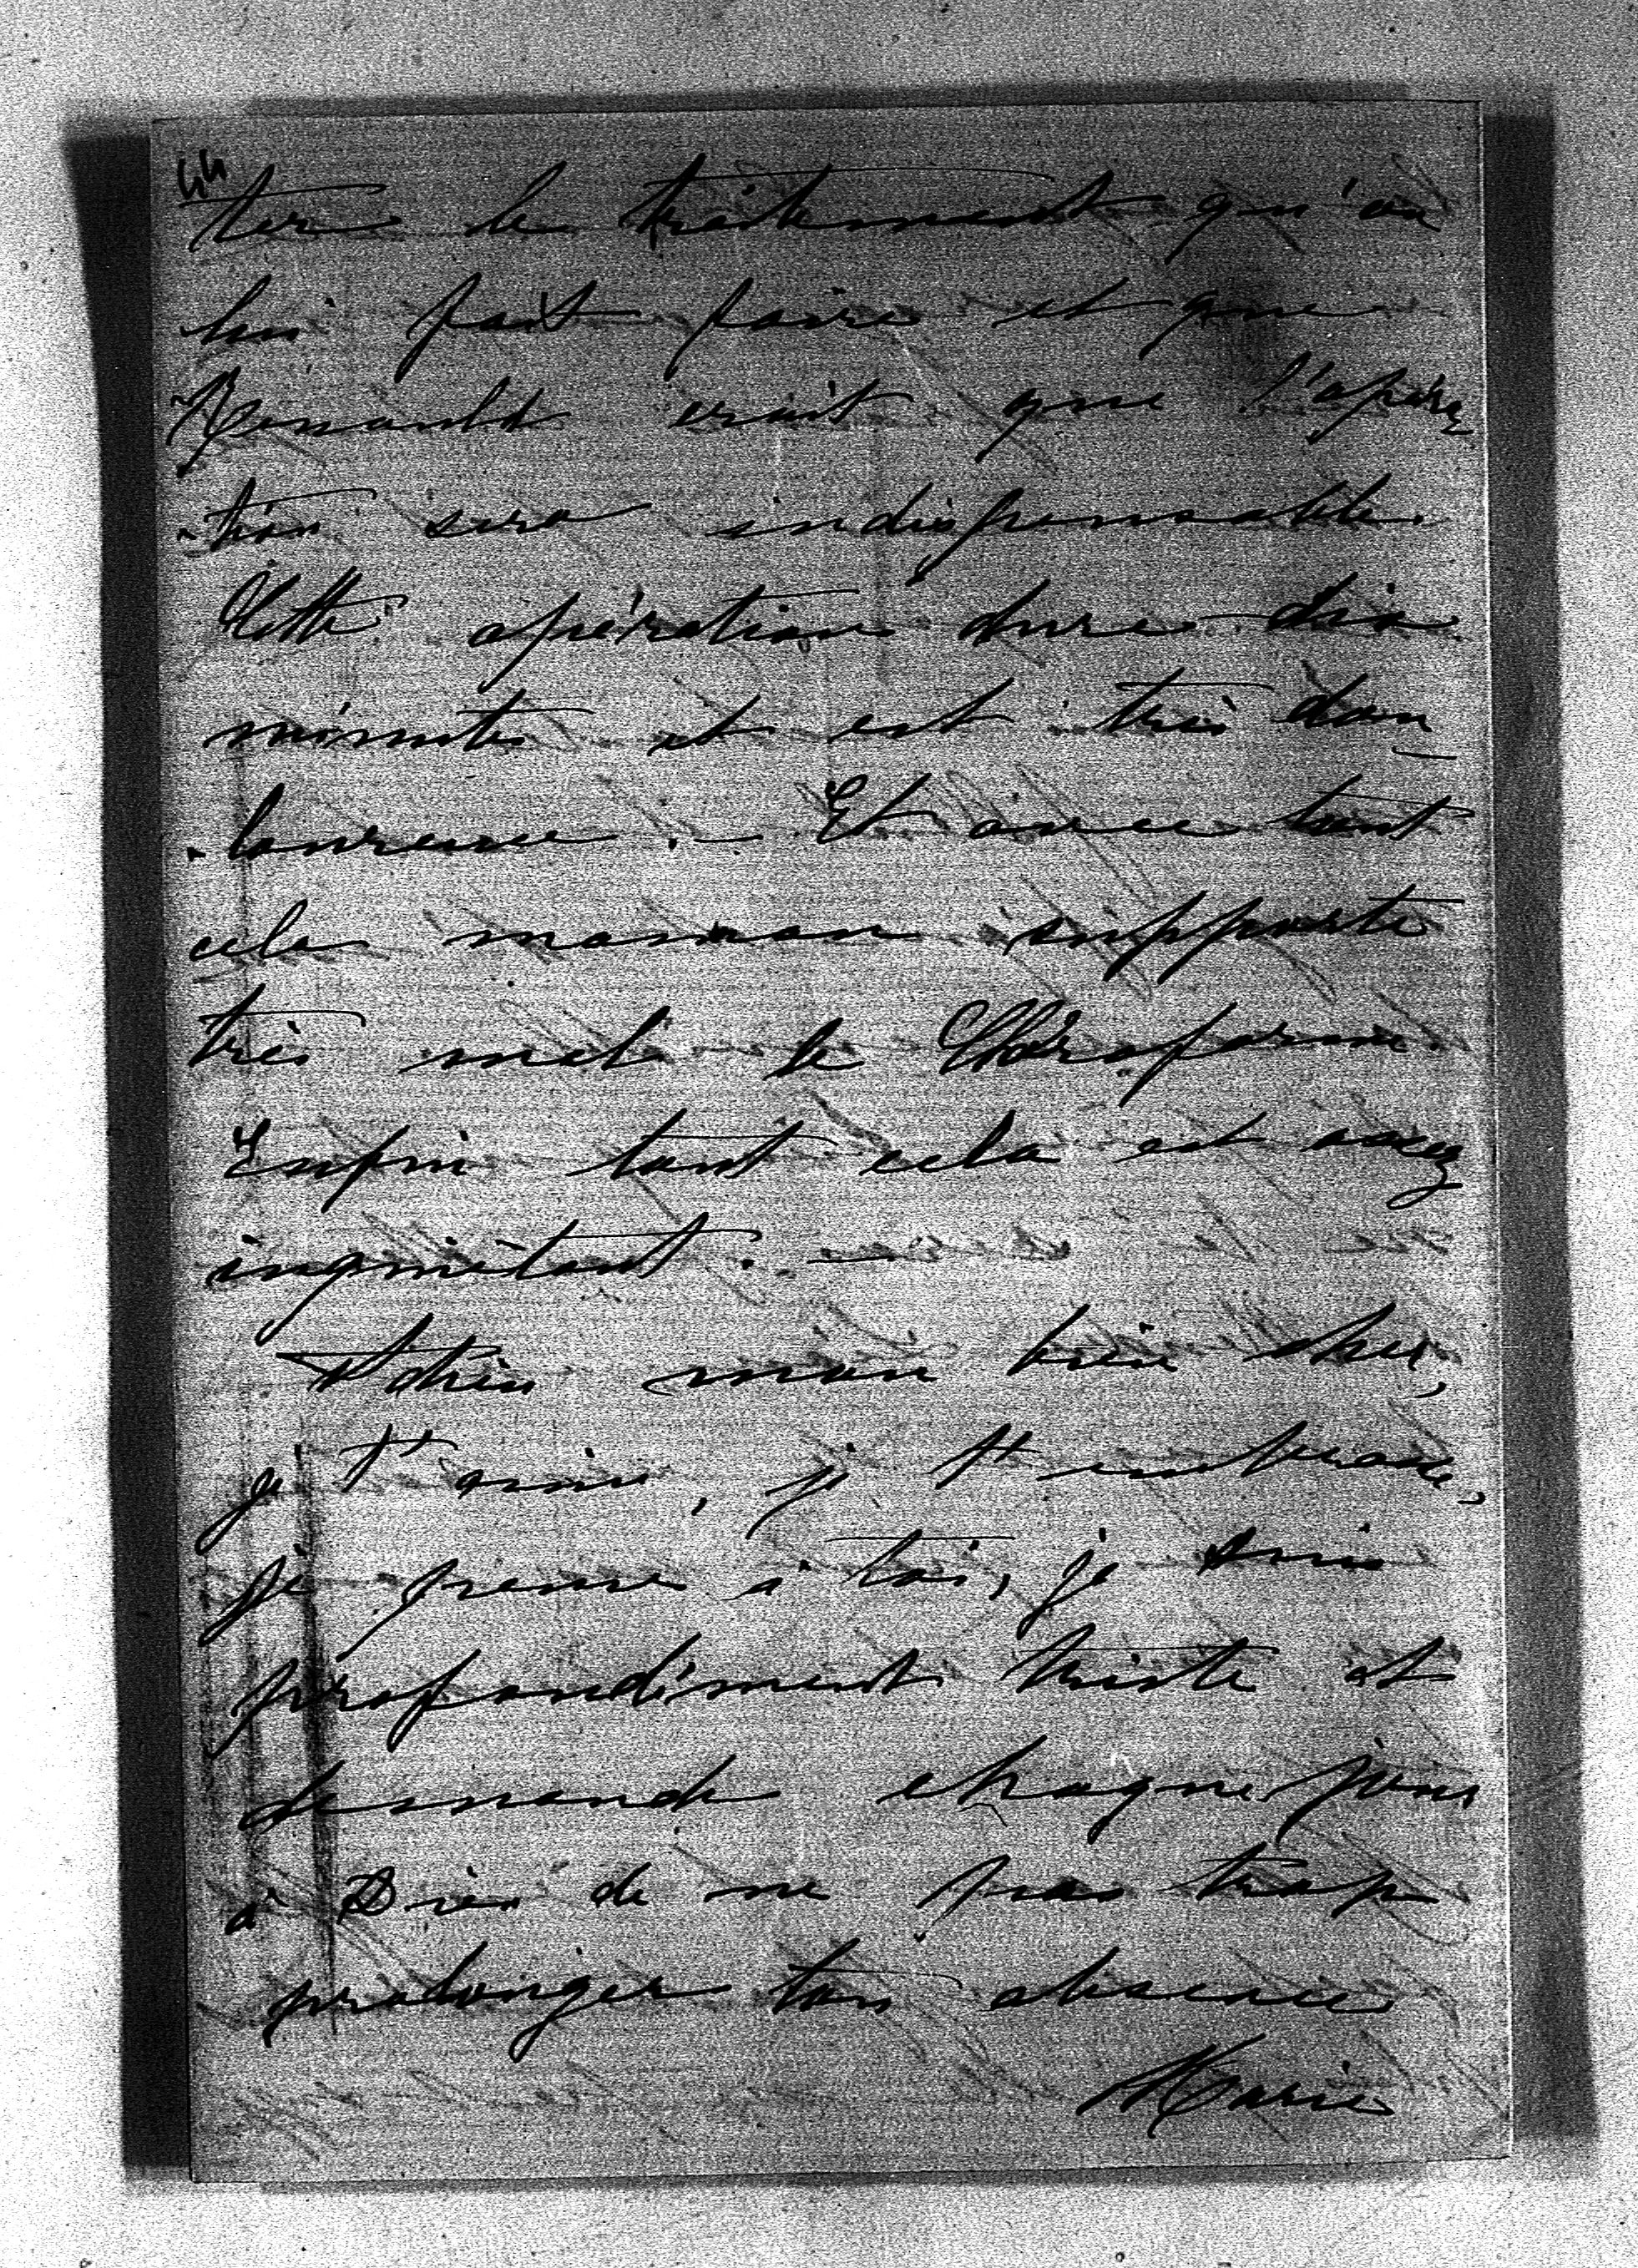 44
ter le traitement qu'on
lui fait faire et que
Renault croit que l'opéra
-tion sera indispensable.
Cette opération dure dix
minutes et est très dou_
-loureuse. _ Et avec tout
cela maman supporte
très mal le Chloroforme.
Enfin tout cela est assez
inquiétant. _
Adieu mon bien cher,
je t'aime, je t'embrasse,
je pense à toi, je suis
profondément triste et
demande chaque jour
à Dieu de ne pas trop
prolonger ton absence
Marie